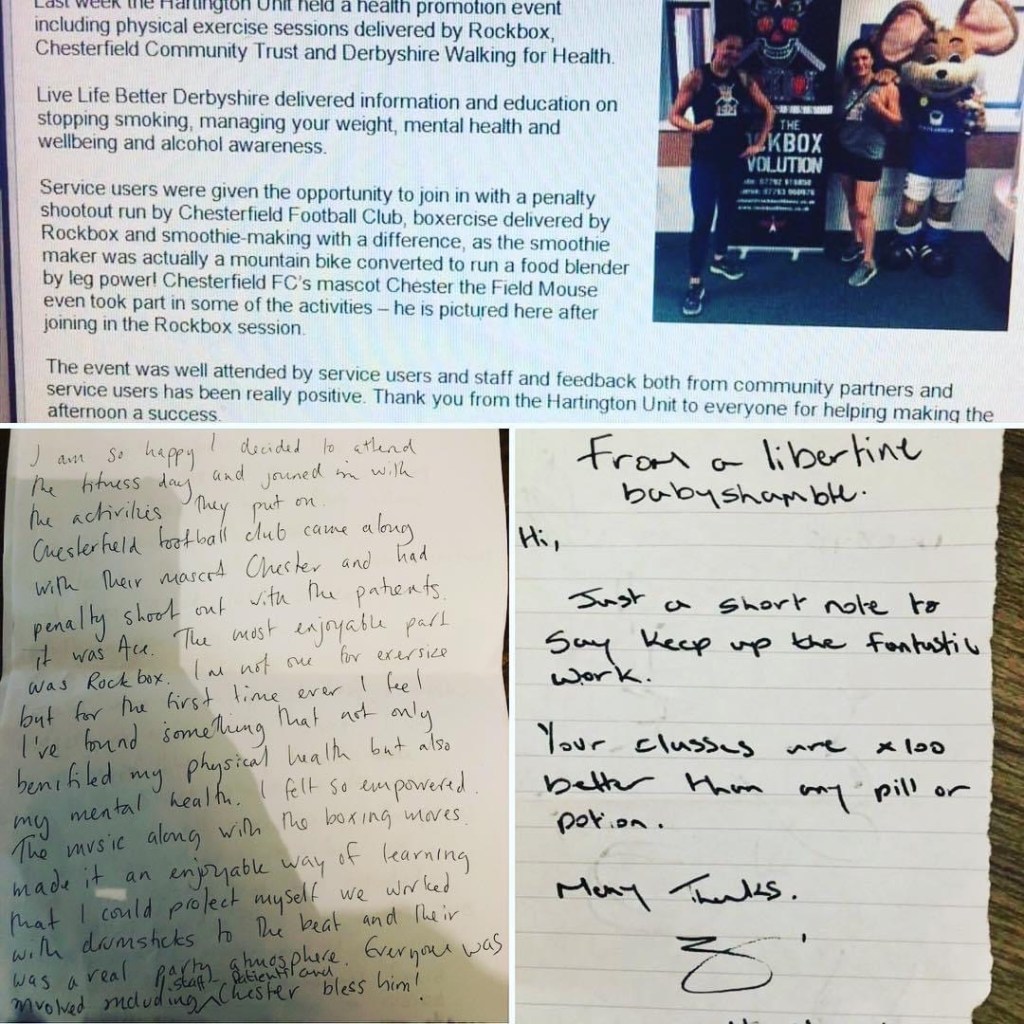 Last week the Hartington Unit held a health promotion event
including physical exercise sessions delivered by Rockbox,
Chesterfield Community Trust and Derbyshire Walking for Health.
Live Life Better Derbyshire delivered information and education on
stopping smoking, managing your weight, mental health and
wellbeing and alcohol awareness.
Service users were given the opportunity to join in with a penalty
shootout run by Chesterfield Football Club, boxercise delivered by
Rockbox and smoothie-making with a difference, as the smoothie
maker was actually a mountain bike converted to run a food blender
by leg power! Chesterfield FC's mascot Chester the Field Mouse
even took part in some of the activities – he is pictured here after
joining in the Rockbox session.
The event was well attended by service users and staff and feedback both from community partners and
service users has been really positive. Thank you from the Hartington Unit to everyone for helping making the
afternoon a success.
THE
CKBOX
VOLUTION
I am so happy I decided to attend
the fitness day and joined in with
the activities they put on.
Chesterfield football club came along
with their mascot Chester and had
penalty shoot out with the patients.
it was Ace. The most enjoyable part
was Rockbox. I'm not one for exersize
but for the first time ever I feel
I've found something that not only
benifited my physical health but also
my mental health. I felt so empowered.
The music along with the boxing moves.
made it an enjoyable way of learning
that I could protect myself we worked
with drumsticks to the beat and their
was a real party atmosphere. Everyone was
involved including staff patients and Chester bless him!
From a libertine
babyshamble.
Hi,
Just a short note to
Say keep up the fantastic
work.
Your classes are x100
better than any pill or
potion.
Many Thanks.